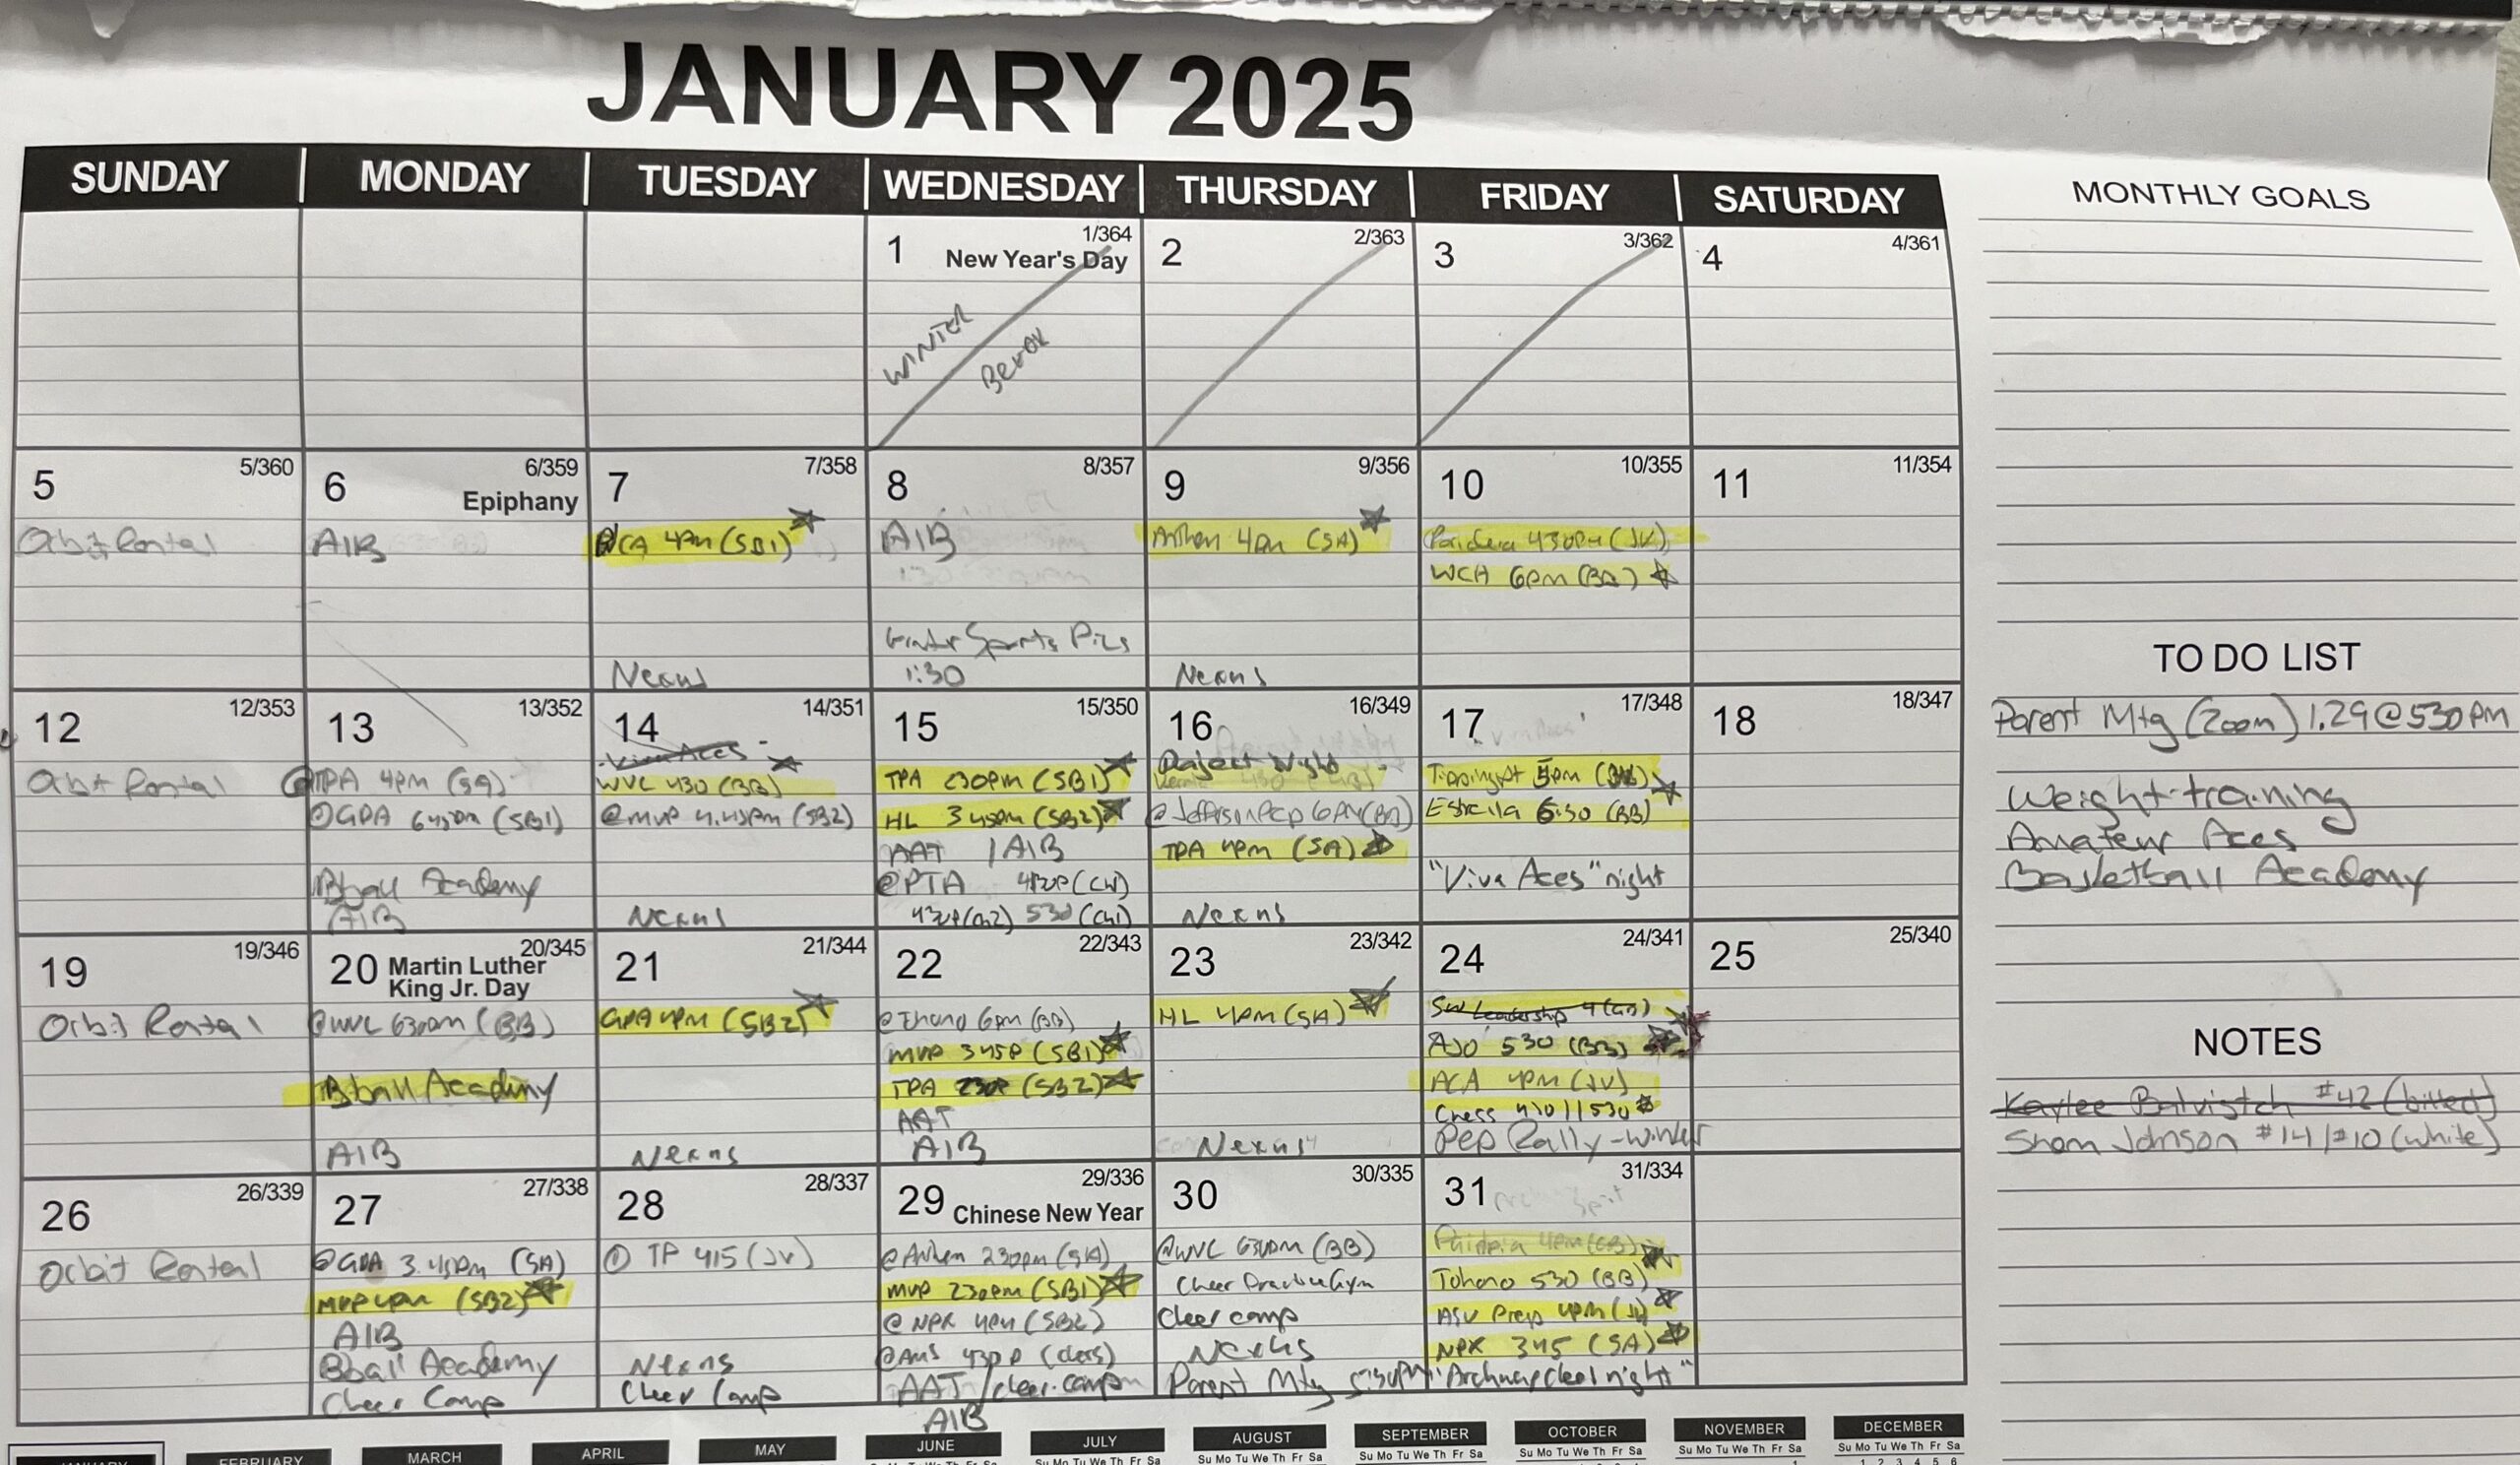 JANUARY 2025
SUNDAY MONDAY TUESDAY WEDNESDAY THURSDAY FRIDAY SATURDAY
MONTHLY GOALS
1 1/364
New Year's Day
WINTER
2 2/363
3 3/362
4 4/361
5 5/360
Orbit Rental
6 6/359
Epiphany
AIB
7 7/358
4PM (SB1)
Nexus
8 8/357
AIB
Sports Pics
1:30
9 9/356
Anthem 4pm (SA)
Nexus
10 10/355
430PM (JV)
WCA 6pm (BB)
11 11/354
TO DO LIST
Parent Mtg (Zoom) 1.29 @ 530pm
Weight-training
Amateur Aces
Basketball Academy
12 12/353
Orbit Rental
13 13/352
@TPA 4pm (SA)
@GPA 645pm (SB1)
Bball Academy
AIB
14 14/351
Viva Aces
WVC 430 (BB)
@MVP 4.45pm (SB2)
Nexus
15 15/350
TPA 230pm (SB1)
HL 345pm (SB2)
AAT / AIB
@PTA 430p (CW)
430p (Ch2) 530 (Ch1)
16 16/349
Project Night
@Jefferson Prep 6PM (BB)
TPA 4pm (SA)
Nexus
17 17/348
5pm
Estrella 6:30 (BB)
"Viva Aces" night
18 18/347
19 19/346
Orbit Rental
20 20/345
Martin Luther
King Jr. Day
@WVC 630pm (BB)
Bball Academy
AIB
21 21/344
GPA 4PM (SB2)
Nexus
22 22/343
6pm (BB)
MVP 345p (SB1)
TPA 230p (SB2)
AAT
AIB
23 23/342
HL 4PM (SA)
Nexus
24 24/341
SW Leadership 4 (GB)
AJO 530 (BB)
ACA 4pm (JV)
Chess 430 / 530
Pep Rally - Winter
25 25/340
NOTES
Kaylee #42
Sham Johnson #14/#10 (white)
26 26/339
Orbit Rental
27 27/338
@GPA 3.45pm (SA)
MVP 4pm (SB2)
AIB
Bball Academy
Cheer Camp
28 28/337
@ TP 415 (JV)
Nexus
Cheer Camp
29 29/336
Chinese New Year
@Anthem 230pm (SA)
MVP 230pm (SB1)
@ NPX 4pm (SB2)
@AMS 430p (chess)
AAT / cheer camp
AIB
30 30/335
@WVC 630pm (BB)
Cheer Practice Gym
Cheer camp
Nexus
Parent Mtg 5:30PM
31 31/334
Paideia 4pm (GB)
Tohono 530 (BB)
ASU Prep 4pm (JV)
NPX 345 (SA)
night"
JANUARY FEBRUARY MARCH APRIL MAY JUNE JULY AUGUST SEPTEMBER OCTOBER NOVEMBER DECEMBER
Su Mo Tu We Th Fr Sa
Su Mo Tu We Th Fr Sa
Su Mo Tu We Th Fr Sa
Su Mo Tu We Th Fr Sa
Su Mo Tu We Th Fr Sa
Su Mo Tu We Th Fr Sa
Su Mo Tu We Th Fr Sa
1 2 3 4 5 6